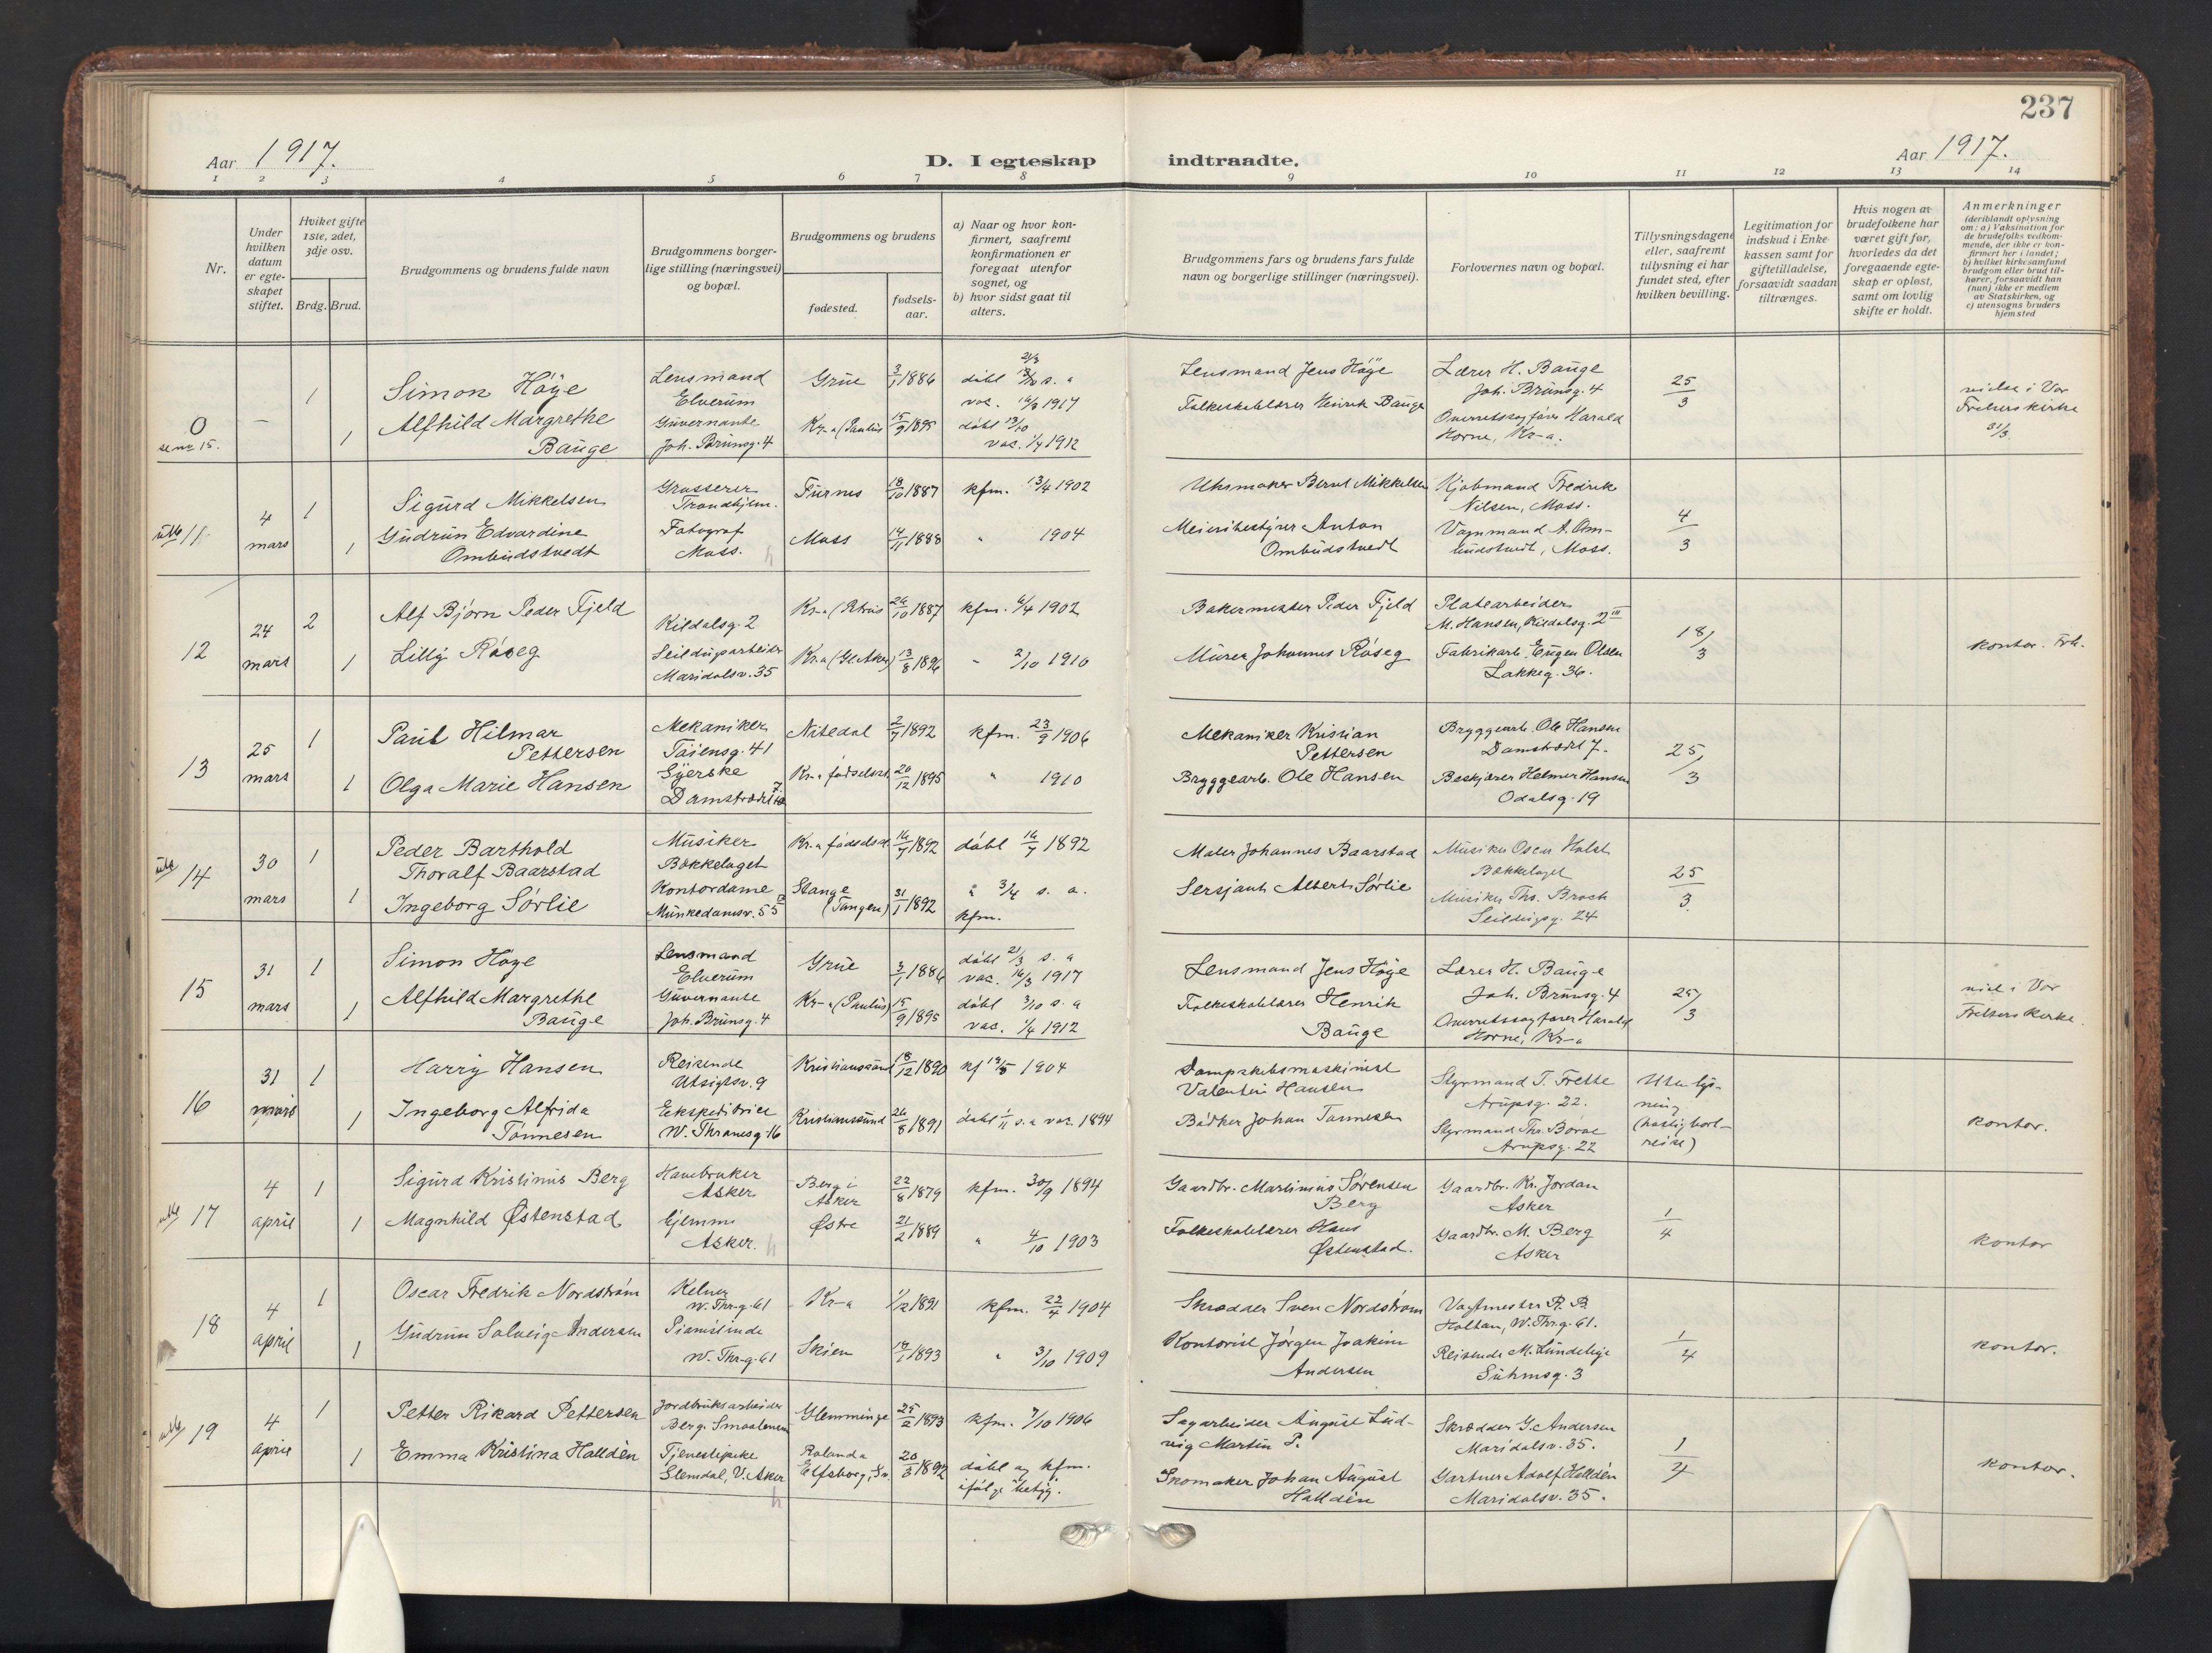 237
Aar 1917.
D. I egteskap indtraadte.
Aar 1917.
1 2 3 4 5 6 7 8 9 10 11 12 13 14
Nr.
Under hvilken datum er egteskapet stiftet.
Hvilket gifte 1ste, 2det, 3dje osv.
Brdg. Brud.
Brudgommens og brudens fulde navn
Brudgommens borgerlige stilling (næringsvei) og bopæl.
Brudgommens og brudens
fødested.
fødselsaar.
a) Naar og hvor konfirmert, saafremt konfirmationen er foregaat utenfor sognet, og
b) hvor sidst gaat til alters.
Brudgommens fars og brudens fars fulde navn og borgerlige stillinger (næringsvei).
Forlovernes navn og bopæl.
Tillysningsdagene eller, saafremt tillysning ei har fundet sted, efter hvilken bevilling.
Legitimation for indskud i Enkekassen samt for giftetilladelse, forsaavidt saadan tiltrænges.
Hvis nogen av brudefolkene har været gift før, hvorledes da det foregaaende egteskap er opløst, samt om lovlig skifte er holdt.
Anmerkninger
(deriblandt oplysning om: a) Vaksination for de brudefolks vedkommende, der ikke er konfirmert her i landet; b) hvilket kirkesamfund brudgom eller brud tilhører, forsaavidt han (hun) ikke er medlem av Statskirken, og c) utensogns bruders hjemsted
0 se nr 15. — 1 Simon Höye Lensmand Elverum Grue 3/1 1886 döbt 21/3 s. a vac. 16/3 1917 Lensmand Jens Höye Lærer H. Bauge Joh. Brunsg. 4 25/3 vielse i Vor Frelsers kirke 31/3
1 Alfhild Margrethe Bauge Guvernante Joh. Brunsg. 4 Kr-a (Paulus 15/9 1895 döbt 13/10 vac. 1/4 1912 Folkeskolelærer Henrik Bauge Overretssagfører Harald Horne, Kr-a.
11 4 mars 1 Sigurd Mikkelsen Grosserer Trondhjem. Furnes 18/10 1887 kfm. 13/4 1902 Uhrmaker Bernt Mikkelsen Kjøbmand Fredrik Nilsen, Moss. 4/3
1 Gudrun Edvardine Ombudstvedt Fotograf Moss. Moss 14/11 1888 " 1904 Meieribestyrer Anton Ombudstvedt Vognmand A. Ombudstvedt, Moss.
12 24 mars 2 Alf Bjørn Peder Fjeld Kildalsg. 2 Kr-a (Petrus 26/10 1887 kfm. 6/4 1902 Bakermester Peder Fjeld Platearbeider M. Hansen, Kildalsg. 2 III 18/3 kontor.
1 Lilly Röseg Seildugarbeider Maridalsv. 35 Kr.a (Gl. Aker) 13/8 1896 " 2/10 1910 Murer Johannes Röseg Fabrikarb. Eugen Olsen Lakkeg. 36.
13 25 mars 1 Paul Hilmar Pettersen Mekaniker Töiensg. 41 Nitedal 2/7 1892 kfm. 23/9 1906 Mekaniker Kristian Pettersen Bryggearb. Ole Hansen Damstrædet 7. 25/3
1 Olga Marie Hansen Syerske Damstrædet Kr-a fødselsst. 20/12 1895 " 1910 Bryggearb. Ole Hansen Beskjærer Helmer Hansen Odalsg. 19
14 30 mars 1 Peder Barthold Thoralf Baarstad Musiker Bækkelaget Kr.a fødselsst. 1892 döbt 1892 Maler Johannes Baarstad Musiker Oscar Holst Bækkelaget 25/3
1 Ingeborg Sörlie Kontordame Munkedamsv. 55 Stange (Tangen) 31/1 1892 " 3/4 s. a. kfm. Sersjant Albert Sörlie Musiker Ths. Broch Seildugsg. 24
15 31 mars 1 Simon Höye Lensmand Elverum Grue 3/1 1886 döbt 21/3 s. a vac. 16/3 1917 Lensmand Jens Höye Lærer H. Bauge Joh. Brunsg. 4 25/3 viet i Vor Frelsers Kirke.
1 Alfhild Margrethe Bauge Guvernante Joh. Brunsg. 4 Kr-a (Paulus) 15/9 1895 döbt 3/10 s. a vac. 1/4 1912 Folkeskolelærer Henrik Bauge Overretssagfører Harald Horne, Kr-a
16 31 mars 1 Harry Hansen Reisende Utsigtsv. 9 Kristianssand 18/12 1890 kf 1904 Dampskibsmaskinist Valentin Hansen Styrmand T. Frette Arupsg. 22. Uten lysning (hastig bortreise) kontor.
1 Ingeborg Alfrida Tönnesen Ekspeditrice W. Thranesg. 16 Kristianssund 26/8 1891 döbt 1/11 s. a vac. 1894 Bødker Johan Tönnesen Styrmand Thr. Börve Arupsg. 22
17 4 april 1 Sigurd Kristinus Berg Havebruker Asker Berg i Asker 22/8 1879 kfm. 30/9 1894 Gaardbr. Martinius Sörensen Berg Gaardbr. Kr. Jordan Asker 1/4 kontor
1 Magnhild Østenstad hjemme Asker. Østre 21/2 1889 " 4/10 1903 Folkeskolelærer Hans Østenstad. Gaardbr. M. Berg Asker
18 4 april 1 Oscar Fredrik Nordström Kelner W. Thr-g. 61 Kr-a 1/12 1891 kfm. 22/4 1904 Skrædder Sven Nordström Vagtmester P. B. Holtan, W. Thr.g. 61. 1/4 kontor.
1 Gudrun Solveig Andersen Pianistinde W. Thr-g. 61 Skien 1893 " 3/10 1909 Kontorist Jörgen Joakim Andersen Reisende M. Lundebye Suhmsg. 3
19 4 april 1 Petter Rikard Pettersen Jordbruksarbeider Berg. Smaalenene Glemminge 25/2 1893 kfm. 7/10 1906 Sagarbeider August Ludvig Martin P. Skrædder G. Andersen Maridalsv. 35. 1/4 kontor.
1 Emma Kristina Halldén Tjenestepike Slemdal, V. Aker Rolanda Elfsborg, Sv. 20/3 1892 döbt og kfm. ifölge betyg. Skomaker Johan August Halldén Gartner Adolf Halldén Maridalsv. 35.